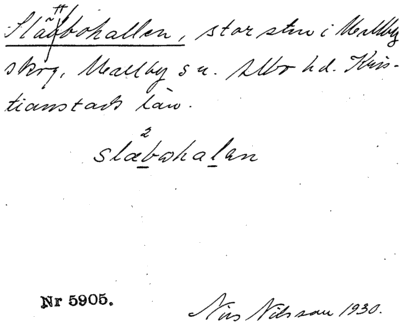 Släbbohallen, stor sten i Mellby
skog, Mellby sn. Albo hd. Kris-
tianstads län.
2
slæbohalen
Nr 5905.
Nils Nilsson 1930.